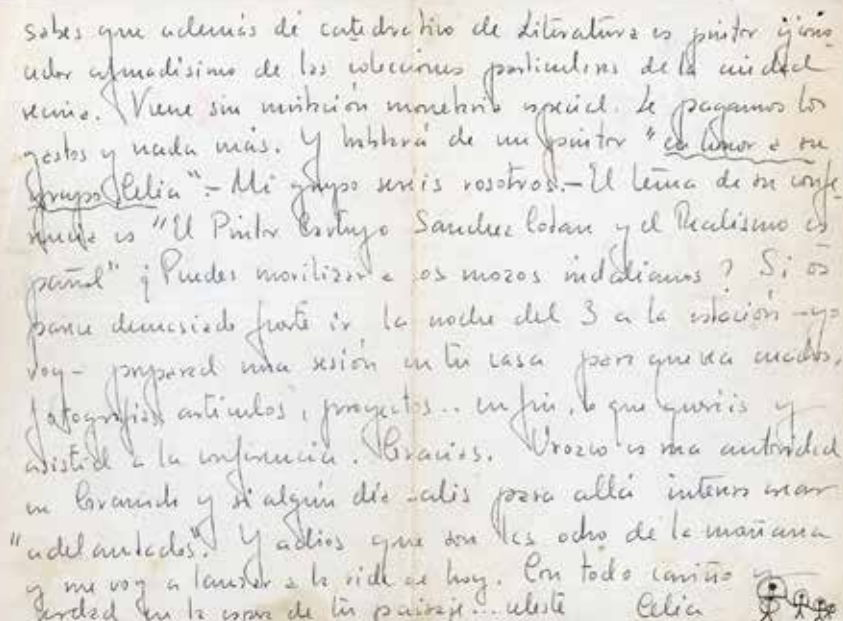 sabes que además de catedrático de Literatura es pintor y
afamadísimo de las colecciones particulares de la ciudad
Viene sin invitación monetaria especial. Le pagamos los
gastos y nada más. Y hablará de un pintor "en honor a su
grupo Celia".- Mi grupo sereis vosotros.- El tema de su confe-
rencia es "El Pintor Cartujo Sanchez Cotan y el Realismo es
pañol" ¿Puedes movilizar a los mozos indalianos? Si os
parece demasiado fuerte ir la noche del 3 a la estación -yo
voy- preparad una sesión en tu casa para que vea cuadros,
fotografias, articulos, proyectos.. en fin, lo que querais y
asistid a la conferencia. Gracias. Orozco es una autoridad
en Granada y si algún día salis para allá interesa crear
"adelantados". Y adios que son las ocho de la mañana
y me voy a lanzar a la vida de hoy. Con todo cariño y
verdad en la de tu paisaje... celeste Celia